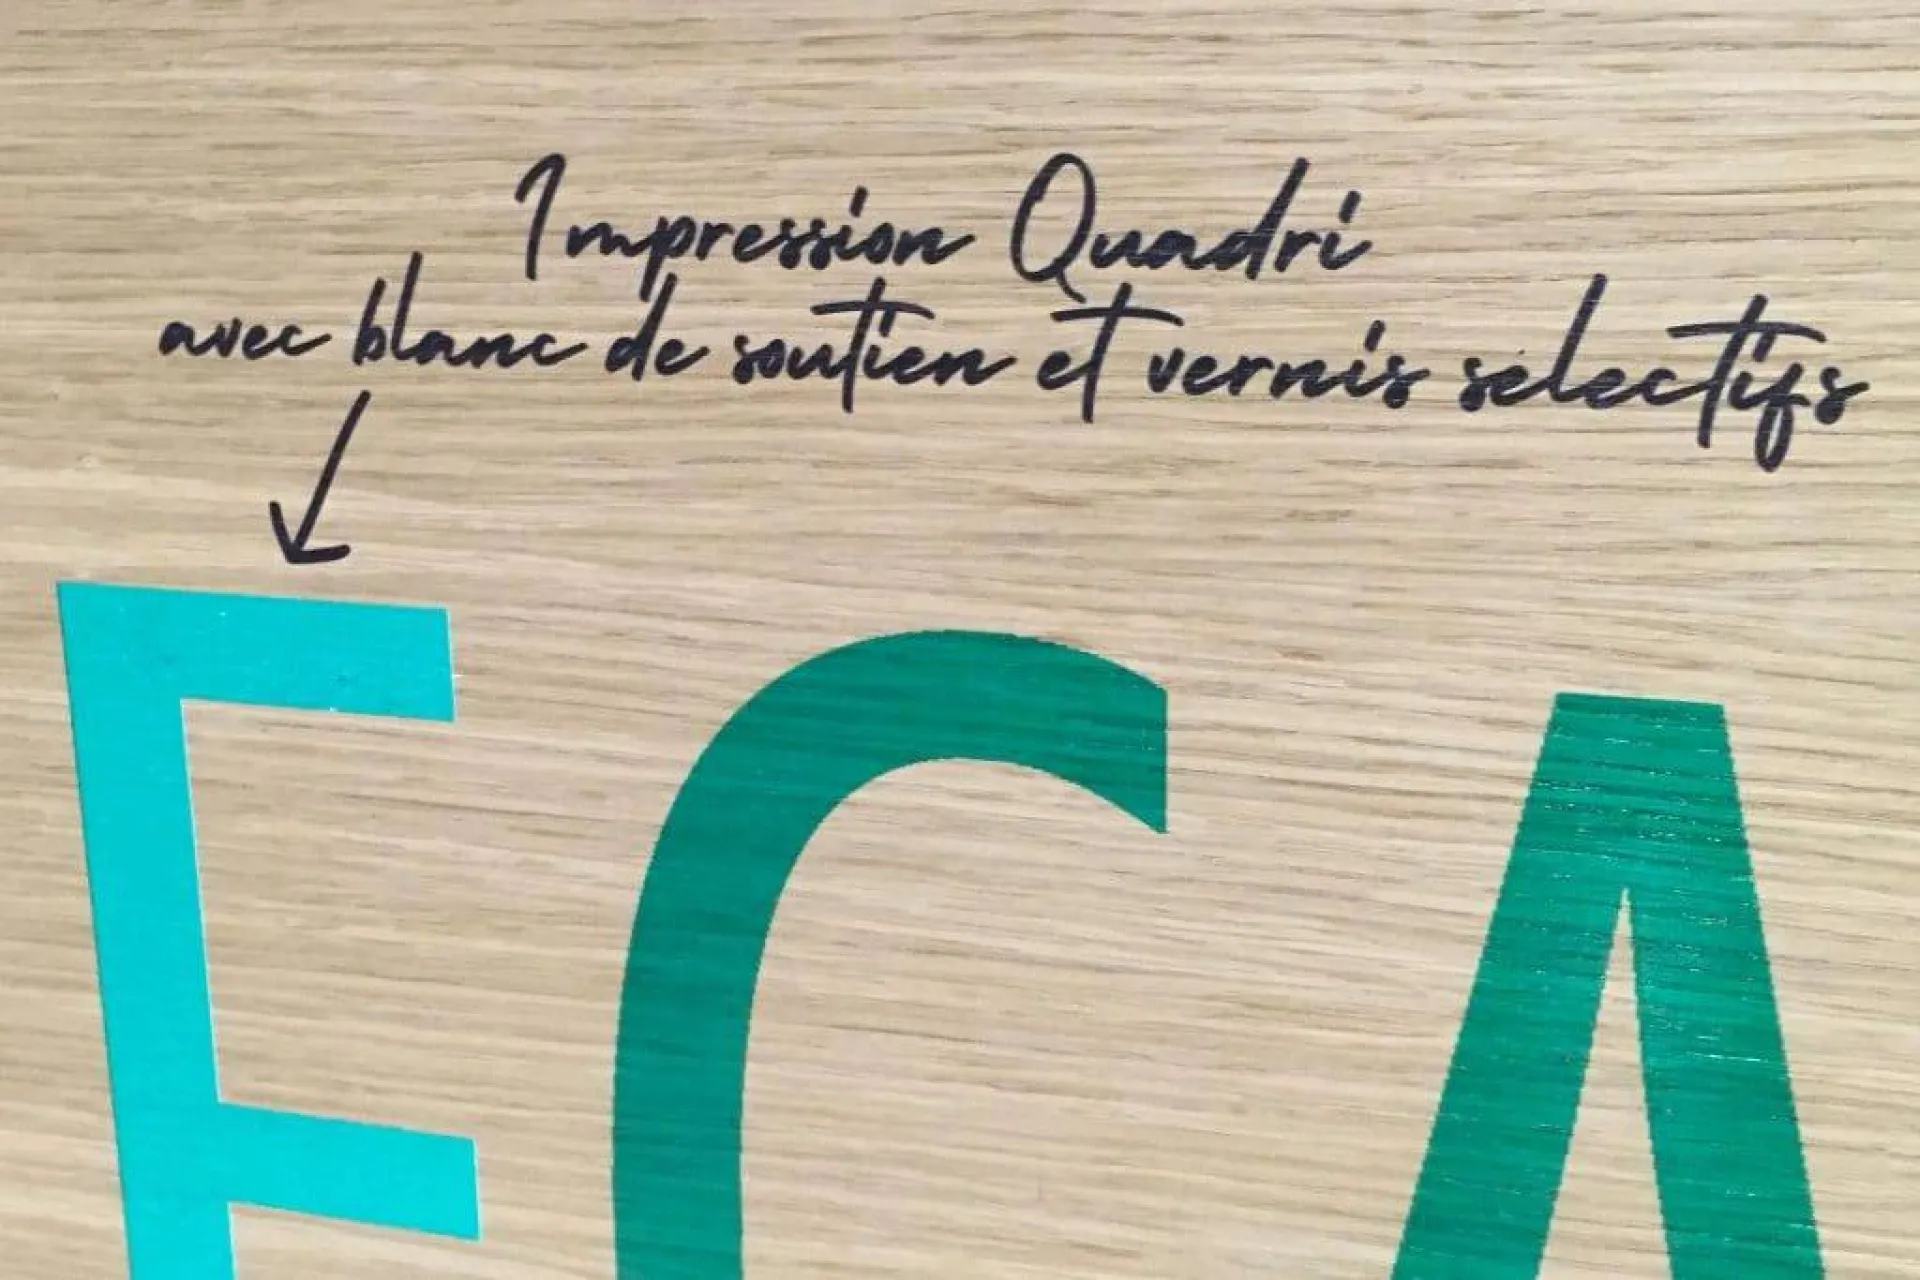 Impression Quadri
avec blanc de soutien et vernis sélectifs
ECA